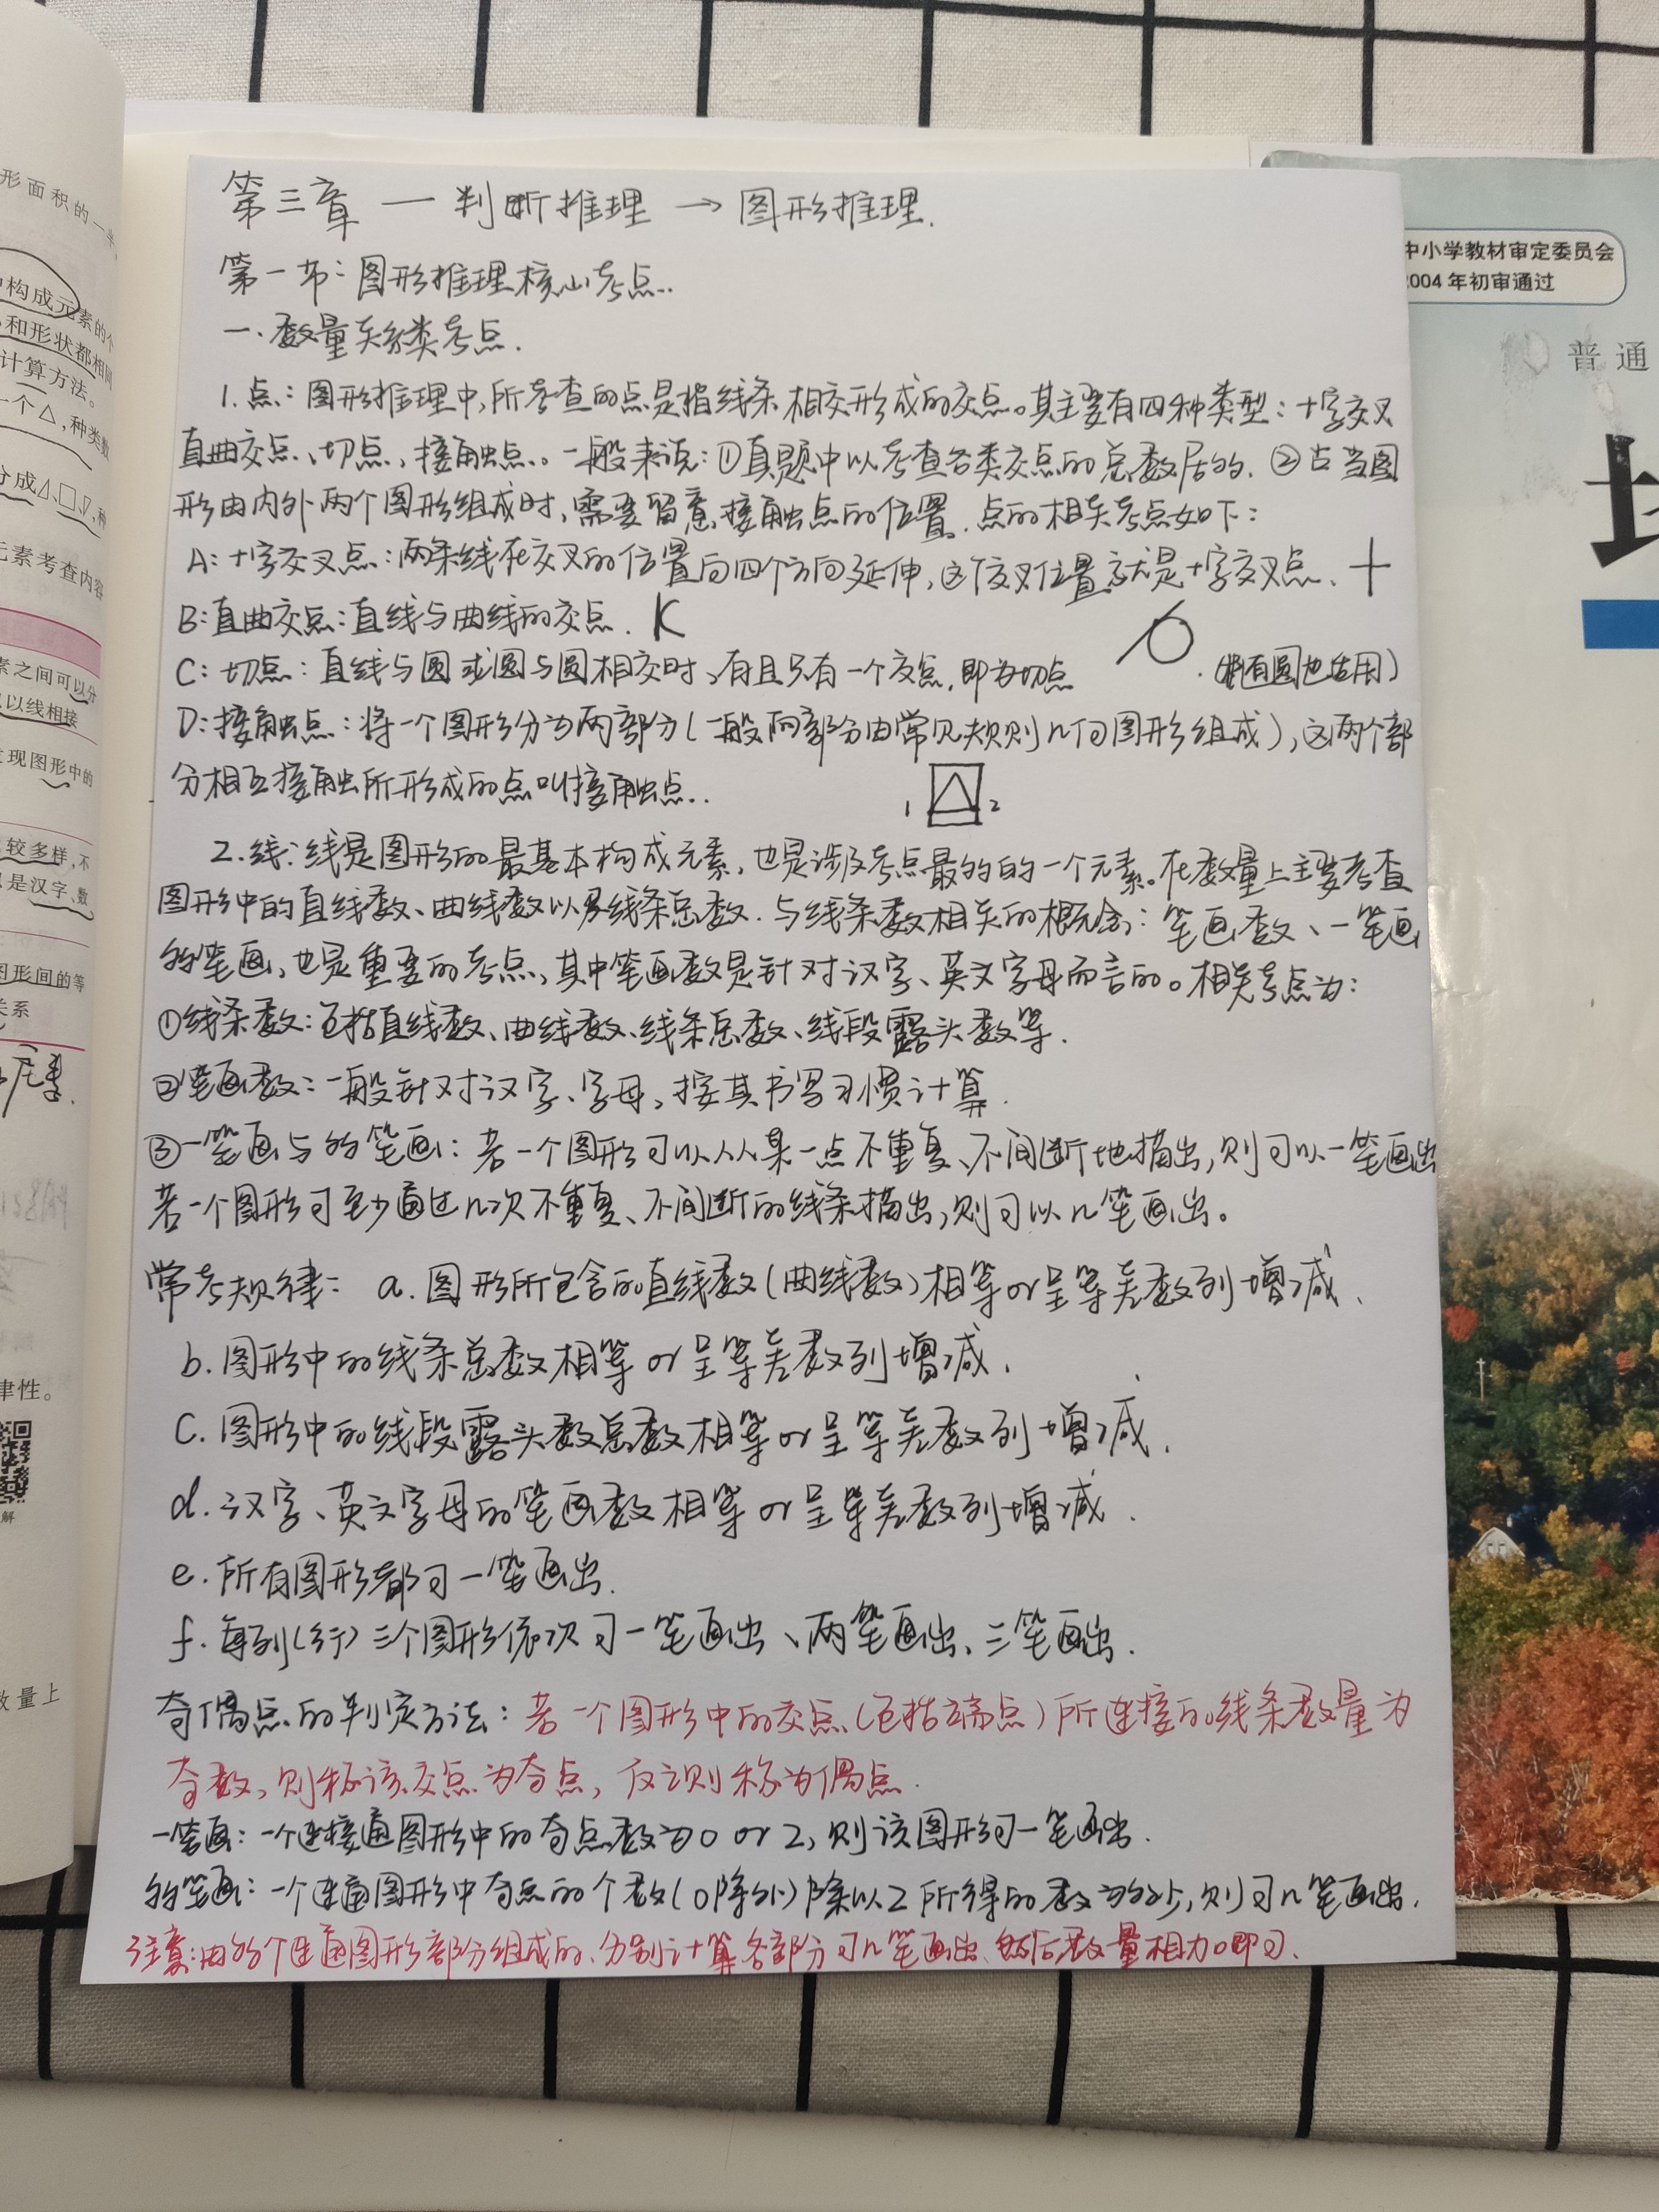 第三章 — 判断推理 → 图形推理.
第一节: 图形推理核心考点..
一. 数量关系类考点.
1. 点: 图形推理中,所考查的点是指线条相交形成的交点。其主要有四种类型: 十字交叉
直曲交点、切点、接触点。一般来说: ①真题中以考查各类交点的总数居多. ②当图
形由内外两个图形组成时,需要留意接触点的位置. 点的相关考点如下:
A: 十字交叉点: 两条线在交叉的位置向四个方向延伸,这个交叉位置就是十字交叉点.
B: 直曲交点: 直线与曲线的交点.
C: 切点: 直线与圆或圆与圆相交时、有且只有一个交点, 即为切点 . (椭圆也适用)
D: 接触点: 将一个图形分为两部分(一般两部分由常见规则几何图形组成),这两个部
分相互接触所形成的点叫接触点..
1 2
2. 线: 线是图形的最基本构成元素,也是涉及考点最多的的一个元素。在数量上主要考查
图形中的直线数、曲线数以及线条总数. 与线条数相关的概念: 笔画数、一笔画
多笔画,也是重要的考点,其中笔画数是针对汉字、英文字母而言的。相关考点为:
①线条数: 包括直线数、曲线数、线条总数、线段露头数等.
②笔画数: 一般针对汉字、字母,按其书写习惯计算.
③一笔画与多笔画: 若一个图形可以从某一点不重复、不间断地描出,则可以一笔画出
若一个图形可至少通过n次不重复、不间断的线条描出,则可以n笔画出。
常考规律: a. 图形所包含的直线数(曲线数)相等or呈等差数列增减、
b. 图形中的线条总数相等or呈等差数列增减.
C. 图形中的线段露头数总数相等or呈等差数列增减.
d. 汉字、英文字母的笔画数相等or呈等差数列增减.
e. 所有图形都可一笔画出.
f. 每列(行)三个图形依次可一笔画出、两笔画出、三笔画出.
奇偶点的判定方法: 若一个图形中的交点(包括端点)所连接的线条数量为
奇数,则称该交点为奇点,反之则称为偶点.
一笔画: 一个连接通图形中的奇点数为0 or 2,则该图形可一笔画出.
多笔画: 一个连通图形中奇点的个数(0除外)除以2所得的数为多少,则可n笔画出.
注意: 由多个连通图形部分组成的、分别计算各部分可几笔画出、然后数量相加即可.
形面积的一半
构成元素的个
和形状都相同
计算方法。
一个△,种类数
分成△、□、▽,种
元素考查内容
素之间可以分
以线相接
发现图形中的
较多样,不
是汉字、数
图形间的等
关系
元素.
律性。
解
数量上
中小学教材审定委员会
2004年初审通过
普通